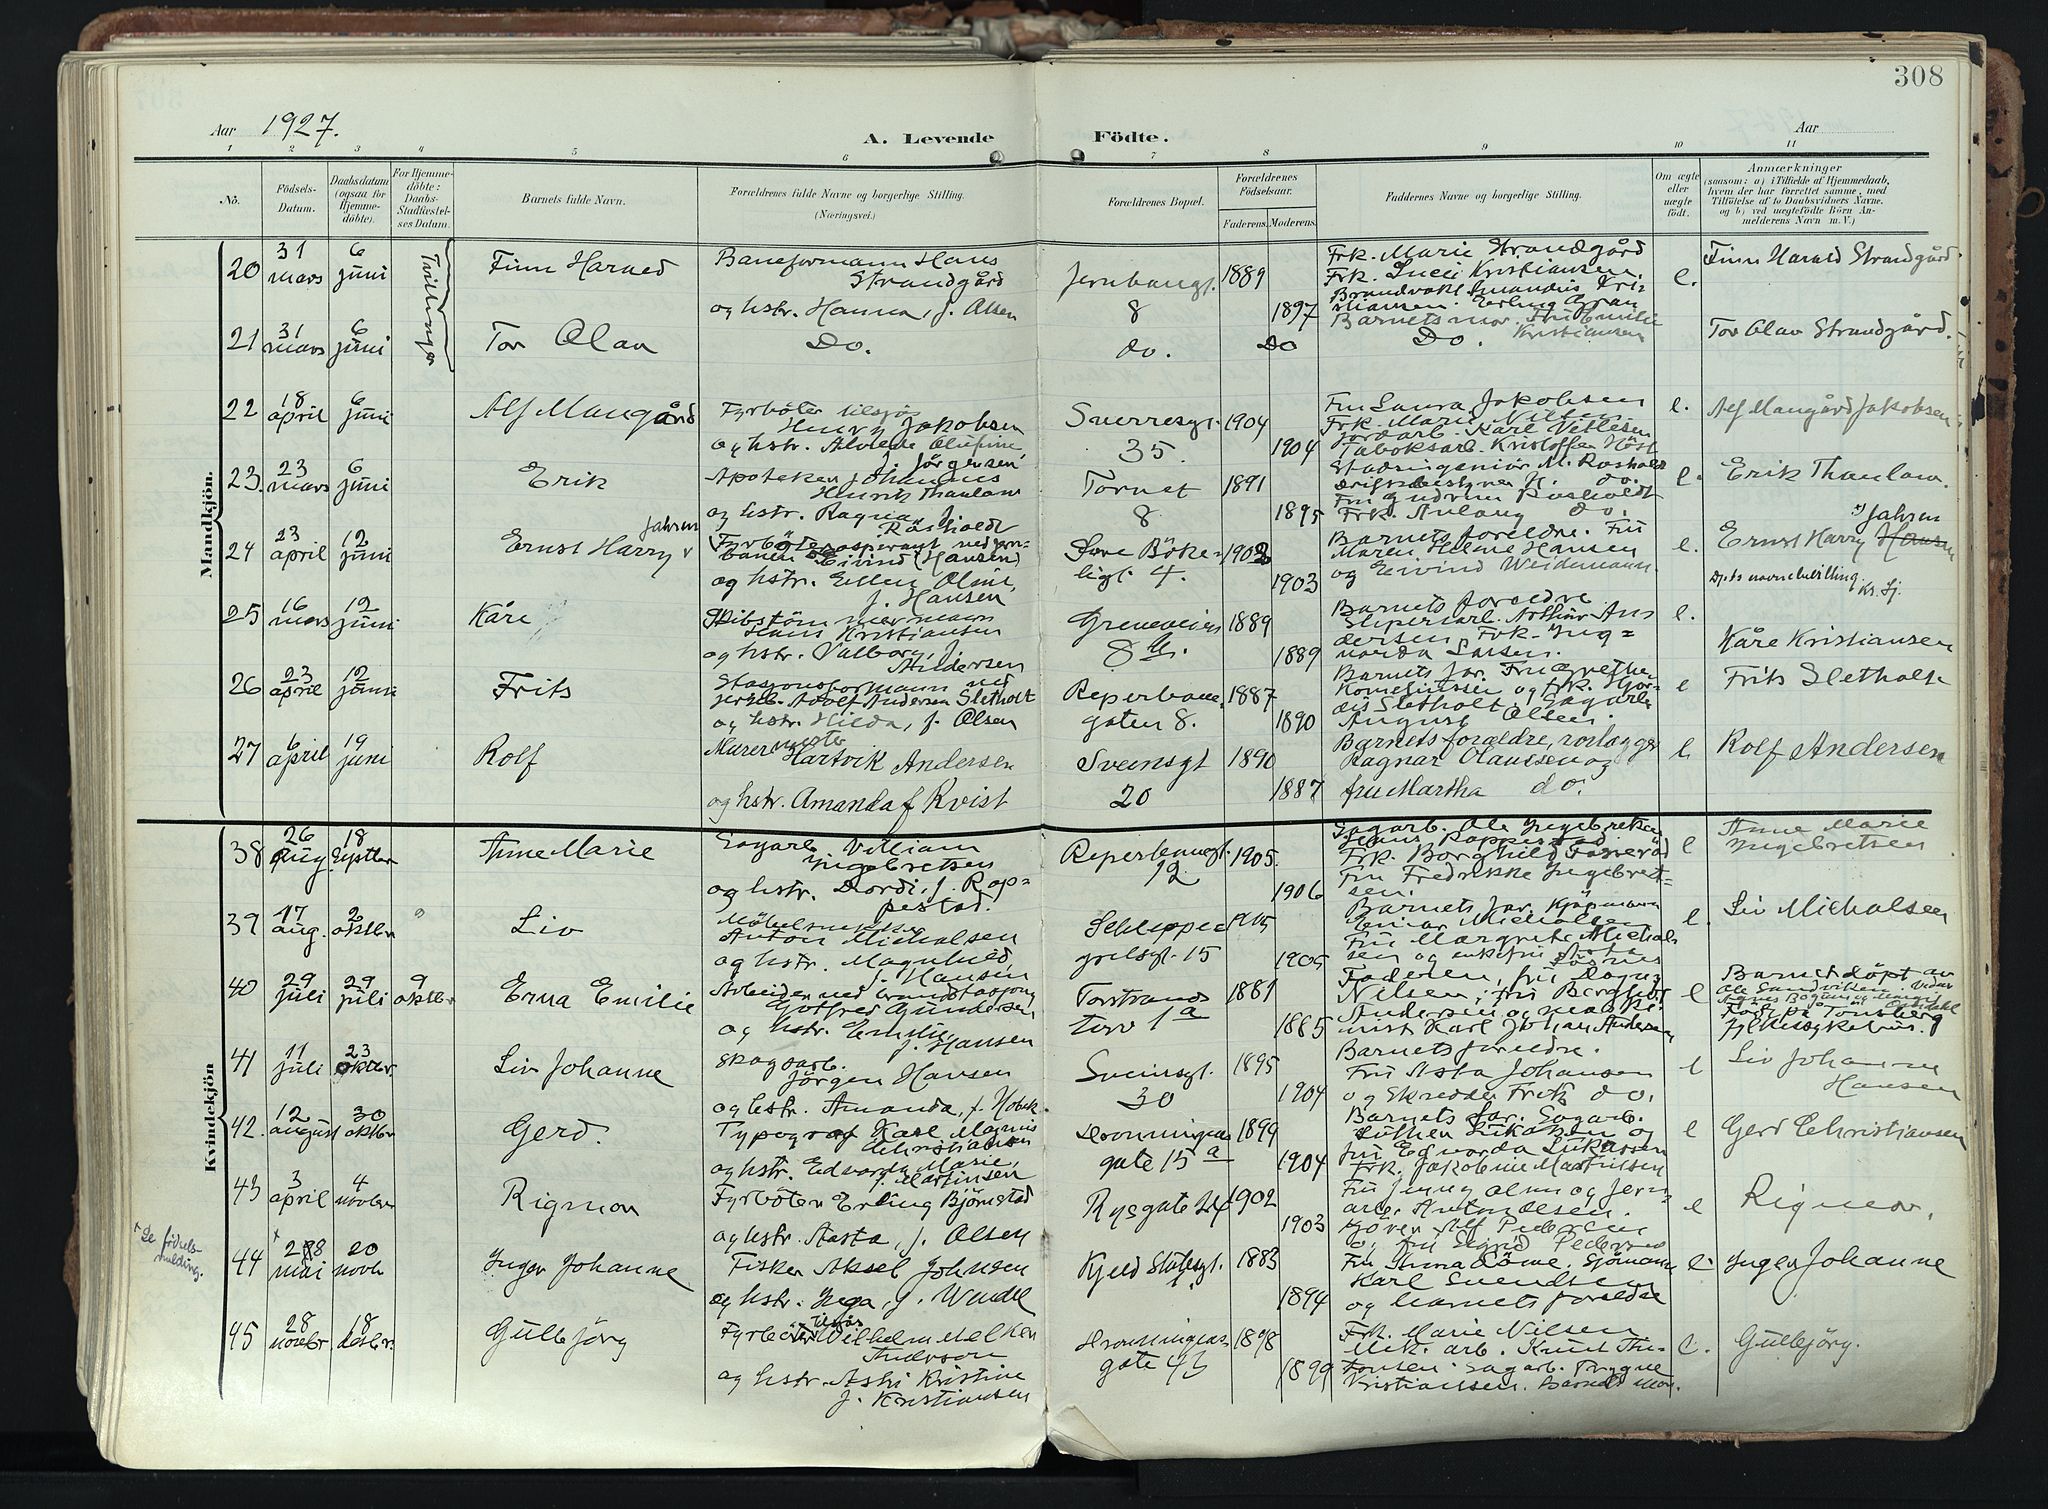 308
Aar 1927.
A. Levende Födte.
Aar
1 2 3 4 5 6 7 8 9 10 11
No.
Födsels-Datum.
Daabsdatum (ogsaa for Hjemme-döbte).
For Hjemme-döbte: Daabs-Stadfæstel-ses Datum.
Barnets fulde Navn.
Forældrenes fulde Navne og borgerlige Stilling.
(Næringsvei.)
Forældrenes Bopæl.
Forældrenes Födselsaar.
Faderens. Moderens.
Faddernes Navne og borgerlige Stilling.
Om ægte eller uægte födt.
Anmærkninger
(saasom: a) i Tilfælde af Hjemmedaab, hvem der har forrettet samme, med Tilföielse af to Daabsvidners Navne. og b) ved uægtefödte Börn An-melderens Navn m. V.)
Mandkjön.
20 31 mars 6 juni
Tvillinger
Finn Harald
Baneformann Hans
Strandgård
og hstr. Hanna, f. Olsen
Jernbanegt.
8
1889
1897
Frk. Marie Strandgård
Frk. Lucci Kristiansen.
Barnets mor. Fru Emilie
Kristiansen
e.
Finn Harald Strandgård.
21 31 mars 6 juni
Tor Olav
Do.
do.
Do
Do.
Tor Olav Strandgård.
22 18 april 6 juni
Alf Maugård
Fyrböter tilsjös
Henry Jakobsen
og hstr. Alvilde Olufine,
f. Jörgensen
Sverresgt.
35.
1904
1904
Fru Laura Jakobsen
Frk. Marie Nilsen
Jordarb. Karl Vetlesen
Taboksarb. Kristoffer Höst
e.
Alf Maugård Jakobsen
23. 23 mars 6 juni
Erik
Apoteker Johannes
Henrik Thaulow
og hstr. Ragna, f.
Rosholdt
Tornet
8
1891
1895
Stadsingeniör M. Rosholdt
Driftsbestyrer H. do.
Fru Gudrun Rosholdt
Frk. Aulaug do.
e.
Erik Thaulow.
24 23 april 12 juni
Ernst Harry Jahren
Fyrböteraspirant ved jern-
banen Eivind (Hansen)
og hstr. Ellen Oline,
f. Hansen
Love Böke-
ligt 4.
1902
1903
Barnets foreldre. Fru
Maren Helene Hansen
og Eivind Weidemann.
e.
Jahren
Ernst Harry Hansen
Dpts navnebevilling
25 16 mars 12 juni
Kåre
Skibstömmermann
Hans Kristiansen
og hstr. Valborg, f.
Andersen
Greveveien
8 b.
1889
1889
Barnets foreldre
Sliperiarb. Arthur An
dersen. Frk. Ing=
varda Larsen.
e.
Kåre Kristiansen
26 23 april 12 juni
Frits
Stasjonsformann ved
jernb. Adolf Andersen Sletholt
og hstr. Hilda, f. Olsen
Reperbane
gaten 8.
1887
1890
Barnets far. Fru Grethe
Korneliussen og frk. Hjör-
dis Sletholt. Sagarb.
August Olsen.
e
Frits Sletholt
27 6 april 19 juni
Rolf
Murermester
Hartvik Andersen
og hstr. Amanda f Kvist
Sveinsgt
20
1890
1887
Barnets foreldre, rörlegger
Ragnar Olaussen og
fru Martha do.
e
Rolf Andersen
Kvindekjön
38 26 aug. 18 septbr
Anne Marie
Sagarb. William
Ingebretsen
og hstr. Dordi, f. Rop=
pestad.
Reperbanegt.
12
1905.
1906
Sagarb. Ole Ingebretsen
Hans Roppestad
Frk. Borghild Fosseröd
Fru Fredrikke Ingebret-
sen.
e
Anne Marie
Ingebretsen
39 17 aug. 2 oktbr
Liv
Möbelsnekker
Anton Michalsen
og hstr. Magnhild
f. Hansen
Schleppe
grelsgt. 15
1905
1905
Barnets far. Kjöpmann
Einar Michalsen
Fru Margrete Michal-
sen og enkefru
e.
Liv Michalsen
40 29 juli 29 juli 9 oktbr
Erna Emilie
Arbeider ved brandstasjon
Gotfred Gundersen
og hstr. Emilie,
f. Hansen
Torstrands
torv 1a
1881
1885
Faderen, fru Dagny
Nilsen, fru Borghild
Andersen og maski-
nist Karl Johan Andersen
e
Barnet döpt av
Ole Sandviken.
på Tönsberg
fylkessykehus.
41 11 juli 23 oktbr
Liv Johanne
Skogsarb.
Jörgen Hansen
og hstr. Amanda, f. Hobæk
Sveinsgt.
30
1895
1904
Barnets foreldre.
Fru Asta Johansen
og Skredder Fritz do.
e
Liv Johanne
Hansen
42. 12 august 30 oktbr
Gerd.
Typograf Karl Magnus
Christiansen
og hstr. Edvarda Marie,
f. Martinsen
Dronningens
gate 15 a
1899
1904
Barnets far. Sagarb.
Luther Lukassen og
fru Edvarda Lukassen
Frk. Jakobine Martinsen
e
Gerd Christiansen
43 3 april 4 novbr
Rigmor
Fyrböter Erling Björnstad
og hstr. Aasta, f. Olsen
Rysgate 24
1902
1903
Fru Jenny Olsen og jern=
arb. Anton Olsen.
Gjöver Alf Pedersen
o. fru Sigrid Pedersen
e
Rigmor.
+ Se födsels-
melding.
44 28 mai 20 novb
Inger Johanne
Fisker Aksel Johnsen
og hstr. Inga, f. Wendel
Kjeld Stubsgt.
1883
1894
Fru Thina Döme. Sjömann
Karl Svendsen
og barnets foreldre
e.
Inger Johanne
45 28 novbr 18 desbr.
Gullbjörg
Fyrböter tilsjös Wilhelm Melker
Anderson
og hstr. Aslri Kristine
f. Kristiansen
Dronningens
gate 43
1898
1899
Frk. Marie Nilsen
Mek. arb. Knut Thu-
fonsen. Sagarb. Trygve
Kristiansen. Barnets mor.
e.
Gullbjörg.